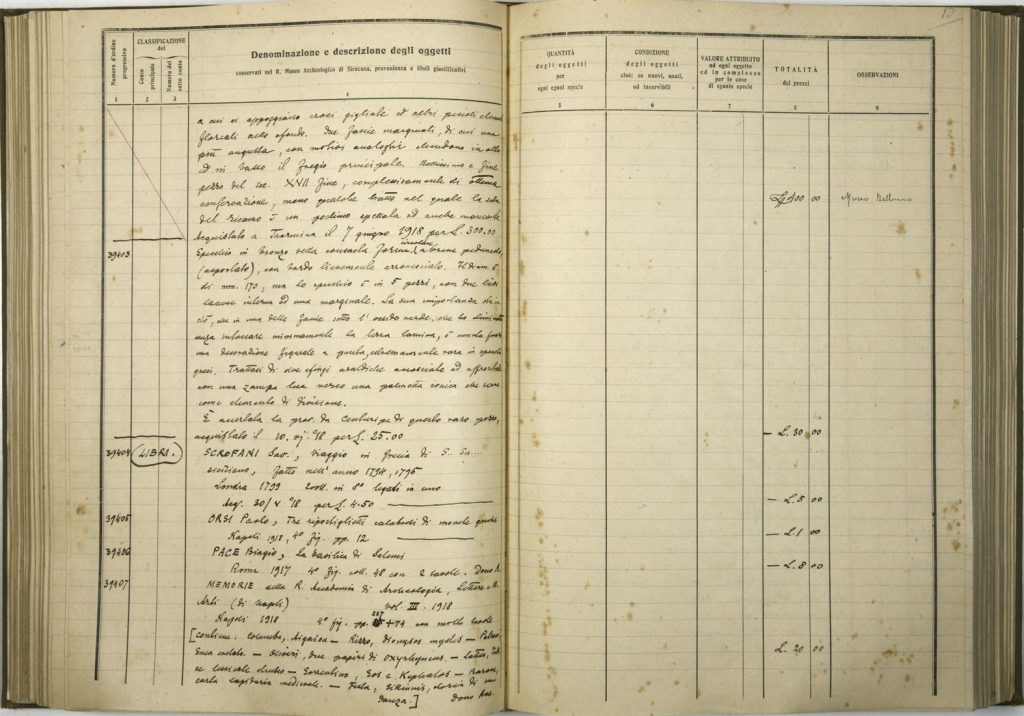 Numero d'ordine progressivo
CLASSIFICAZIONE
del
Conto principale
Numero del sotto conto
Denominazione e descrizione degli oggetti
conservati nel R. Museo Archeologico di Siracusa, provenienza e titoli giustificativi
1 2 3 4
a cui si appoggiano croci gigliate ed altri piccoli
floreali nello sfondo. Due fascie marginali, di cui una
più angusta, con motivi analoghi chiudono in alto
ed in basso il fregio principale. Bellissimo e fine
pezzo del sec. XVII fine, complessivamente di ottima
conservazione, meno qualche tratto nel quale la seta
del ricamo è un pochino spellata ed anche mancante
Acquistato a Taormina il 7 giugno 1918 per L. 300.00
39403
Specchio in bronzo della consueta forma circolare, a breve peduncolo
(asportato), con bordo lievemente arrovesciato. Il diam. è
di mm. 170, ma lo specchio è in 5 pezzi, con due
lacune interne ed una marginale. La sua importanza sta in
ciò, che in una delle facie sotto l'ossido verde, che ho eliminato
senza intaccare minimamente la tersa lamina, è venuta fuori
una decorazione figurale a punta, estremamente rara in specchi
greci. Trattasi di due sfingi araldiche accosciate ed affrontate
con una zampa tesa verso una palmetta ionica che serve
come elemento di divisione.
È accertata la prov. da Centuripe di questo raro pezzo,
acquistato il 10. vj. 918 per L. 25.00
39404
LIBRI.
SCROFANI Sav., Viaggio in Grecia di S. Sc...
siciliano, fatto nell'anno 1794, 1795
Londra 1799 voll. in 8° legati in uno
Acq. 30/V 918 per L. 4.50
39405
ORSI Paolo, Tre ripostiglietti calabresi di monete greche
Napoli 1918, 4° fig. pp. 12
39406
PACE Biagio, La basilica di Salemi
Roma 1917 4° fig. coll. 48 con 2 tavole. Dono A.
39407
MEMORIE della R. Accademia di Archeologia, Lettere e B.
Arti (di Napoli) vol. III. 1918
Napoli 1918 4° fig. pp. 227 + 74 con molte tavole
[contiene: Columba, Aigaion – Rizzo, Dionysos mystes –
Enea – Olivieri, due papiri di Oxyrhyncus –
– Sorrentino, Eos e Kephalos –
carta lapidaria medievale. – Festa, Sikinnis, storia di una
danza.] Dono Aut.
QUANTITÀ
degli oggetti
per
ogni eguali specie
5
CONDIZIONE
degli oggetti
cioè: se nuovi, usati,
od inservibili
6
VALORE ATTRIBUITO
ad ogni oggetto
ed in complesso
per le cose
di eguale specie
7
TOTALITÀ
dei prezzi
8
OSSERVAZIONI
9
L. 400 00 Museo Bellomo
– L. 30 00
– L. 5 00
– L. 1 00
– L. 8 00
L. 20 00